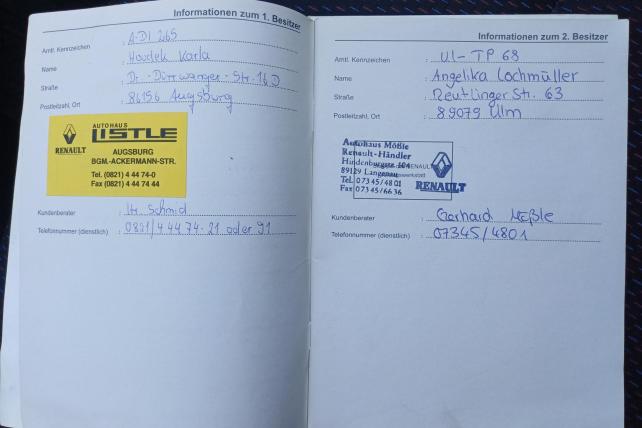 Informationen zum 1. Besitzer
Amtl. Kennzeichen : A-DI 265
Name : Houdek Karla
Straße : Dr.-Dürrwanger-Str. 16 D
Postleitzahl, Ort : 86156 Augsburg
RENAULT
AUTOHAUS
LISTLE
AUGSBURG
BGM.-ACKERMANN-STR.
Tel. (0821) 4 44 74-0
Fax (0821) 4 44 74 44
Kundenberater : Hr. Schmid
Telefonnummer (dienstlich) : 0821/444 74-21 oder 91
Informationen zum 2. Besitzer
Amtl. Kennzeichen : Ul-TP 68
Name : Angelika Lochmüller
Straße : Reutlinger Str. 63
Postleitzahl, Ort : 89079 Ulm
Autohaus Mößle
Renault-Händler
Hindenburgstr. 104
89129 Langenau
Tel. 0 73 45 / 48 01
Fax 0 73 45 / 66 36
RENAULT
Kundenberater : Gerhard Mößle
Telefonnummer (dienstlich) : 07345/4801